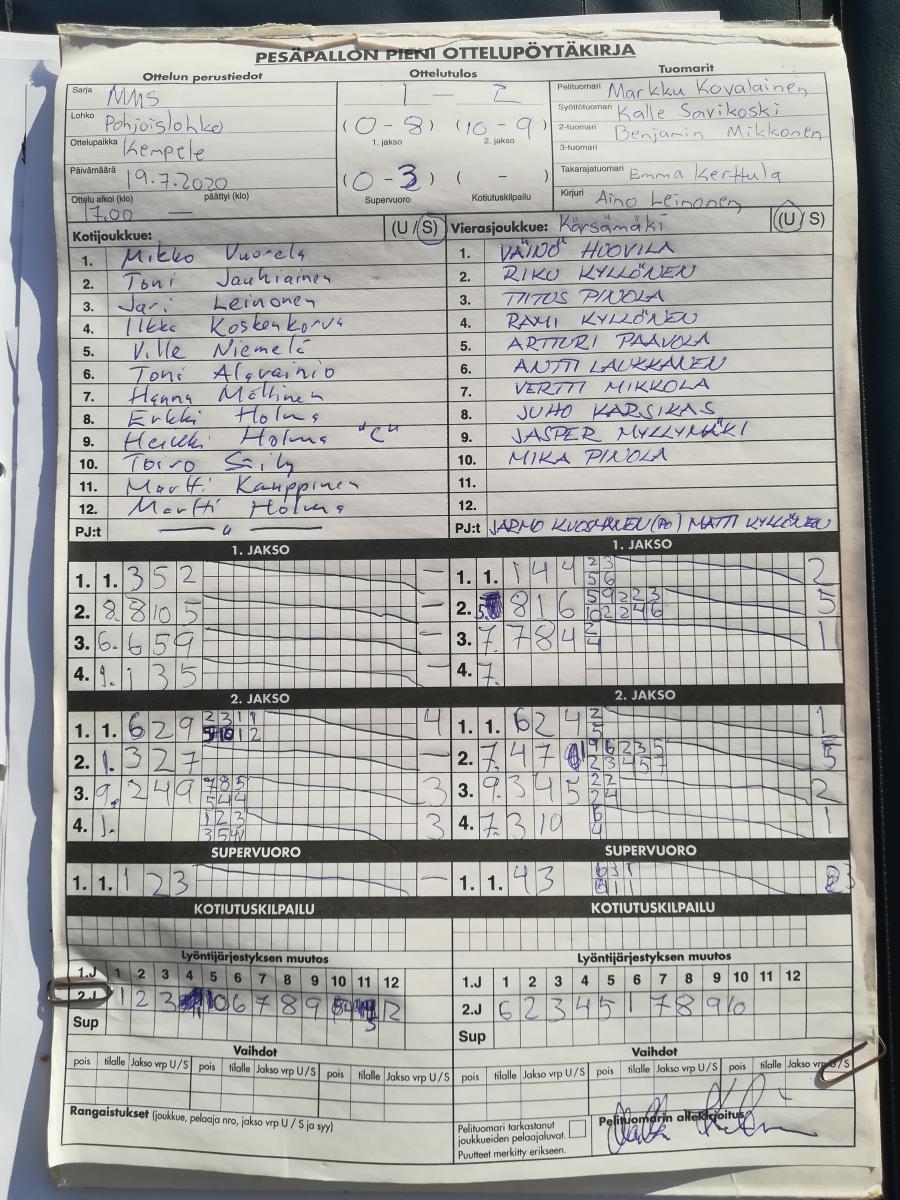 PESÄPALLON PIENI OTTELUPÖYTÄKIRJA
Ottelun perustiedot Ottelutulos Tuomarit
Sarja MMS
Lohko Pohjoislohko
Ottelupaikka Kempele
Päivämäärä 19.7.2020
Ottelu alkoi (klo) päättyi (klo)
17.00 —
1 — 2
(0-8) (10-9)
1. jakso 2. jakso
(0-3) ( - )
Supervuoro Kotiutuskilpailu
Pelituomari Markku Kovalainen
Syöttötuomari Kalle Savikoski
2-tuomari Benjamin Mikkonen
3-tuomari
Takarajatuomari Emma Kerttula
Kirjuri Aino Leinonen
Kotijoukkue: (U / S)
1. Mikko Vuorela
2. Toni Jauhiainen
3. Jari Leinonen
4. Ilkka Koskenkorva
5. Ville Niemelä
6. Toni Alavainio
7. Hannu Möttinen
8. Erkki Holma
9. Heikki Holma "C"
10. Toivo Säily
11. Martti Kauppinen
12. Martti Holma
PJ:t — " —
Vierasjoukkue: Kärsämäki (U / S)
1. VÄINÖ HUOVILA
2. RIKU KYLLÖNEN
3. TIITUS PINOLA
4. RAMI KYLLÖNEN
5. ARTTURI PAAVOLA
6. ANTTI LAUKKANEN
7. VERTTI MIKKOLA
8. JUHO KARSIKAS
9. JASPER MYLLYMÄKI
10. MIKA PINOLA
11.
12.
PJ:t JARMO KUOSMANEN (PO) MATTI KYLLÖNEN
1. JAKSO
1. 1. 3 5 2 —
2. 8. 8 10 5 —
3. 6. 6 5 9 —
4. 9. 1 3 5 —
1. JAKSO
1. 1. 1 4 4 2 3 2
5 6
2. 5. 8 1 6 5 9 2 2 3 5
10 2 2 4 6
3. 7. 7 8 4 2 1
4
4. 7.
2. JAKSO
1. 1. 6 2 9 2 3 1 1 4
5 10 1 2
2. 1. 3 2 7
3. 9. 2 4 9 7 8 5 3
5 4 4
4. 1. 1 2 3 3
3 5 4
2. JAKSO
1. 1. 6 2 4 2 1
5
2. 7. 4 7 1 9 6 2 3 5 5
2 3 4 5 7
3. 9. 3 4 5 2 2 2
2 4
4. 7. 3 10 6 1
4
SUPERVUORO
1. 1. 1 2 3 —
SUPERVUORO
1. 1. 4 3 6 3 1 3
8 1 1
KOTIUTUSKILPAILU
KOTIUTUSKILPAILU
Lyöntijärjestyksen muutos
1.J 1 2 3 4 5 6 7 8 9 10 11 12
2.J 1 2 3 10 6 7 8 9 12
Sup
Lyöntijärjestyksen muutos
1.J 1 2 3 4 5 6 7 8 9 10 11 12
2.J 6 2 3 4 5 1 7 8 9 10
Sup
Vaihdot
pois tilalle Jakso vrp U / S pois tilalle Jakso vrp U / S pois tilalle Jakso vrp U / S
Vaihdot
pois tilalle Jakso vrp U / S pois tilalle Jakso vrp U / S pois tilalle Jakso vrp U / S
Rangaistukset (joukkue, pelaaja nro, jakso vrp U / S ja syy)
Pelituomari tarkastanut
joukkueiden pelaajaluvat.
Puutteet merkitty erikseen.
Pelituomarin allekirjoitus